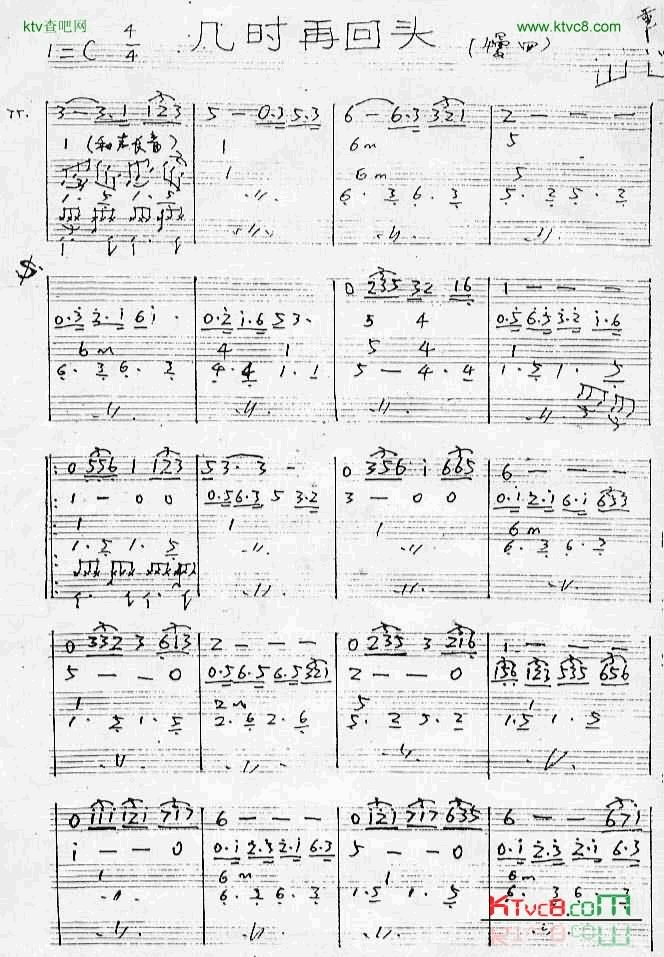 ktv查吧网
www.ktvc8.com
1=C 4/4 几时再回头 (慢四)
3 - 3.1 123 | 5 - 0.3 5.3 | 6 - 6.3 321 | 2 - - -
1 (和声长音) | 1 | 6m | 5
1 | 6m | 5
1. 5 1. 5 | 6. 3 6. 3 | 5. 2 5. 2
0 235 32 16 | 1 - - -
0.3 2.1 61. | 0.2 1.6 53. | 5 4 | 0.5 6.5 3.2 1.6
6m | 4 1 | 5 4 | 1
6. 3 6. 3 | 4. 4 1. 1 | 5 - 4. 4 | 1. 5 1. 5
0 556 1 123 | 53. 3 - | 0 356. i 665 | 6 - - -
1 - 0 0 | 0.5 6.3 5 3.2 | 3 - 0 0 | 0.i 2.i 6.i 653
1 | 1 | 1 | 6m
1. 5 1. 5 | 6. 3 6. 3
0 332 3 613 | 2 - - - | 0 235 3 216 | 1 - - -
5 - - 0 | 0.5 6.5 6.5 321 | 2 - - 0 | 136 123 535 656
1 | 2m | 5 | 1
1. 5 1. 5 | 2. 6 2. 6 | 5. 2 5. 2 | 1. 5 1. 5
0 iii i2i 7i7 | 6 - - - | 0 i2i 7i7 635 | 6 - - 67i
i - - 0 | 0.i 2.3 2.i 6.3 | 5 - - 0 | 0.i 2.3 2.i 6.3
1 | 6m | 1 | 6m
6. 3 6. 3 | 1. 5 1. 5 | 6. 3 6. 3
KTvc8.com